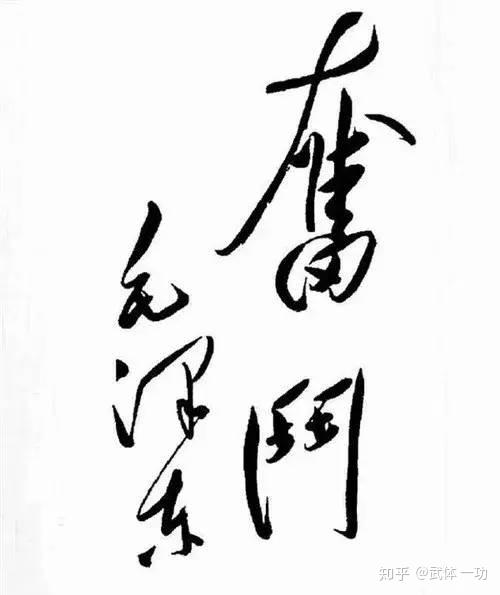 奮鬥
毛泽东
知乎 @武体一功